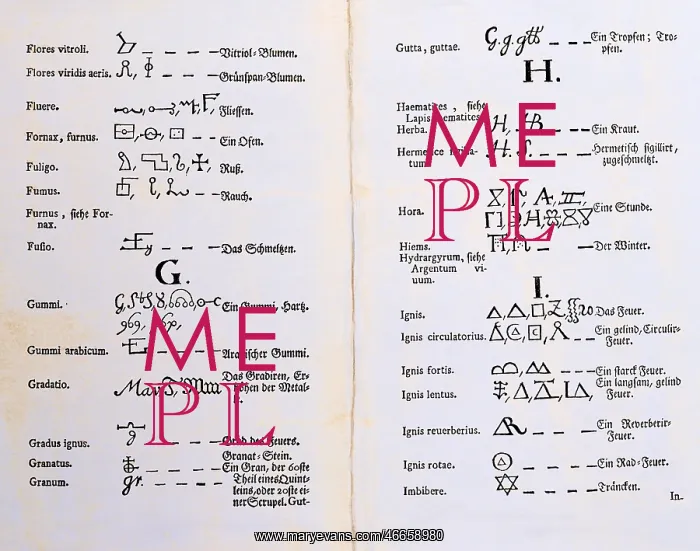 Flores vitroli. Vitriol-Blumen.
Flores viridis aeris. Grünspan-Blumen.
Fluere. Fliessen.
Fornax, furnus. Ein Ofen.
Fuligo. Ruß.
Fumus. Rauch.
Furnus, siehe For-
nax.
Fusio. Das Schmeltzen.
G.
Gummi. Ein Gummi, Hartz.
Gummi arabicum. Arabischer Gummi.
Gradatio. Das Gradiren, Er-
höhen der Metal-
Gradus ignus. Grad des Feuers.
Granatus. Granat-Stein.
Granum. gr. Ein Gran, der 60ste
Theil eines Quint-
leins, oder 20ste ei-
ner Scrupel. Gut-
Gutta, guttae. G. g. gtt Ein Tropfen; Tro-
pfen.
H.
Haematites, siehe
Lapis hematites.
Herba. H, Ein Kraut.
Hermetice H. S. Hermetisch sigillirt,
tum. zugeschmeltzt.
Hora. Eine Stunde.
Hiems. Der Winter.
Hydrargyrum, siehe
Argentum vi-
uum.
I.
Ignis. Das Feuer.
Ignis circulatorius. Ein gelind, Circulir-
Feuer.
Ignis fortis. Ein starck Feuer.
Ignis lentus. Ein langsam, gelind
Feuer.
Ignis reuerberius. Ein Reverberir-
Feuer.
Ignis rotae. Ein Rad-Feuer.
Imbibere. Träncken.
In-
ME
PL
ME
PL
www.maryevans.com/46658980